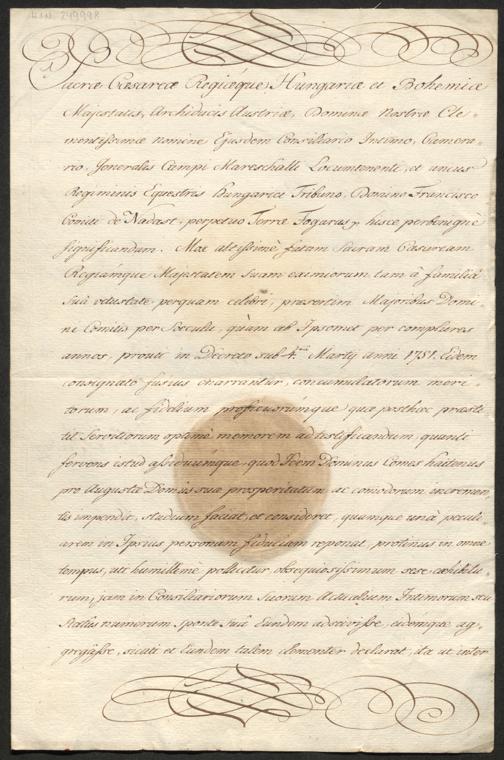 Sacræ Cæsareæ Regiéque, Hungariæ et Bohemiæ
Majestatis, Archiducis Austriæ, Dominæ Nostræ Cle-
mentissimæ nomine Ejusdem Consiliario Intimo, Camera-
rio, Generalis Campi Mareschalli Locumtenenti, et unius
Regiminis Equestris Hungarici Tribuno, Domino Francisco
Comiti de Nadast, perpetuo Terræ Fogaras, hisce perbenignè
significandum. Mox altissimè fatam Sacram Cæsaream
Regiámque Majestatem Suam eximiorum tam à familiâ
Suâ vetustate perquam celebri, præsertim Majoribus Domi-
ni Comitis per Sæcula, quàm ab Ipsomet per complures
annos, prout in Decreto sub 4.ta Martij anni 1751. Eidem
consignato fusius enarrantur, concumulatorum meri-
torum, ac fidelium proficuorúmque quæ posthæc præsti-
tit Servitiorum optimè memorem ad testificandum, quanti
fervens istud assiduúmque quod Idem Dominus Comes hactenus
pro Augustæ Domûs suæ prosperitatum, ac comodorum incremen-
tis impendit, studium faciat, et consideret, quamque unà pecul-
arem in Ipsius personam fiduciam reponat, protenus in omne
tempus, uti humillimè pollicitur obsequiosissimum sese exhibitu-
rum, jam in Consiliariorum Suorum Actualium Intimorum seu
Status numerum Sponte Suâ Eundem adscivisse, eidemque ag-
gregâsse, sicuti et Eundem talem clementer declarat, ita ut inter